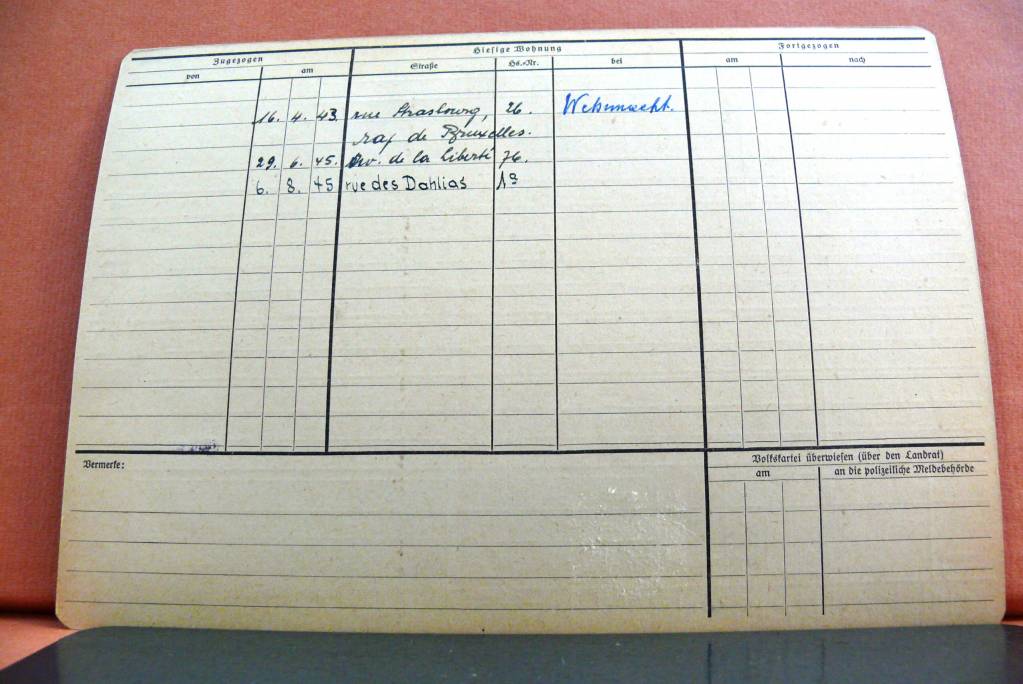 Zugezogen Hiesige Wohnung Fortgezogen
von am Straße Hs.-Nr. bei am nach
16. 4. 43. rue Strasbourg, 26. Wehrmacht.
de Bruxelles.
29. 6. 45. Av. de la liberté 76.
6. 8. 45 rue des Dahlias 19
Vermerke: Volkskartei überwiesen (über den Landrat)
am an die polizeiliche Meldebehörde